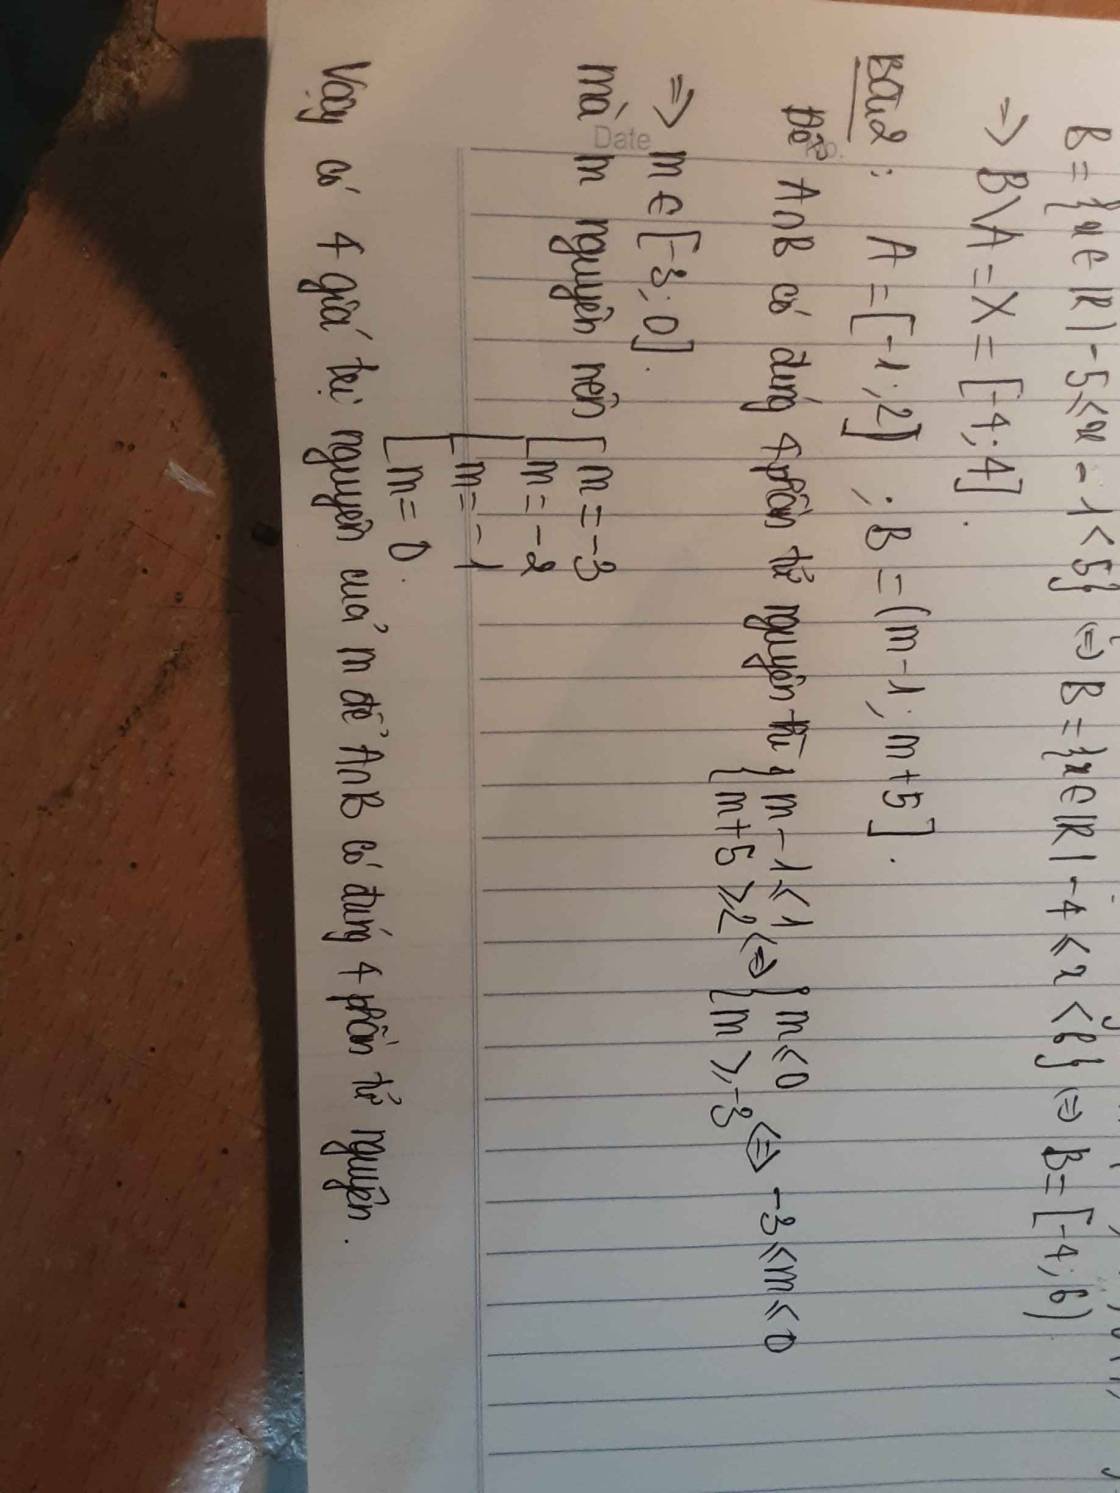 B = {x ∈ R | -5 ≤ x - 1 < 5} ⇔ B = {x ∈ R | -4 ≤ x < 6} ⇔ B = [-4; 6)
⇒ B\A = X = [-4; 4].
Bài 2 : A = [-1; 2] ; B = (m-1; m+5].
Để A∩B có đúng 4 phần tử nguyên thì { m-1 ≤ 1 ⇔ { m ≤ 0 ⇔ -3 ≤ m ≤ 0
{ m+5 ≥ 2 { m ≥ -3
⇒ m ∈ [-3; 0].
Date
mà m nguyên nên [ m = -3
[ m = -2
[ m = -1
[ m = 0.
Vậy có 4 giá trị nguyên của m để A∩B có đúng 4 phần tử nguyên.